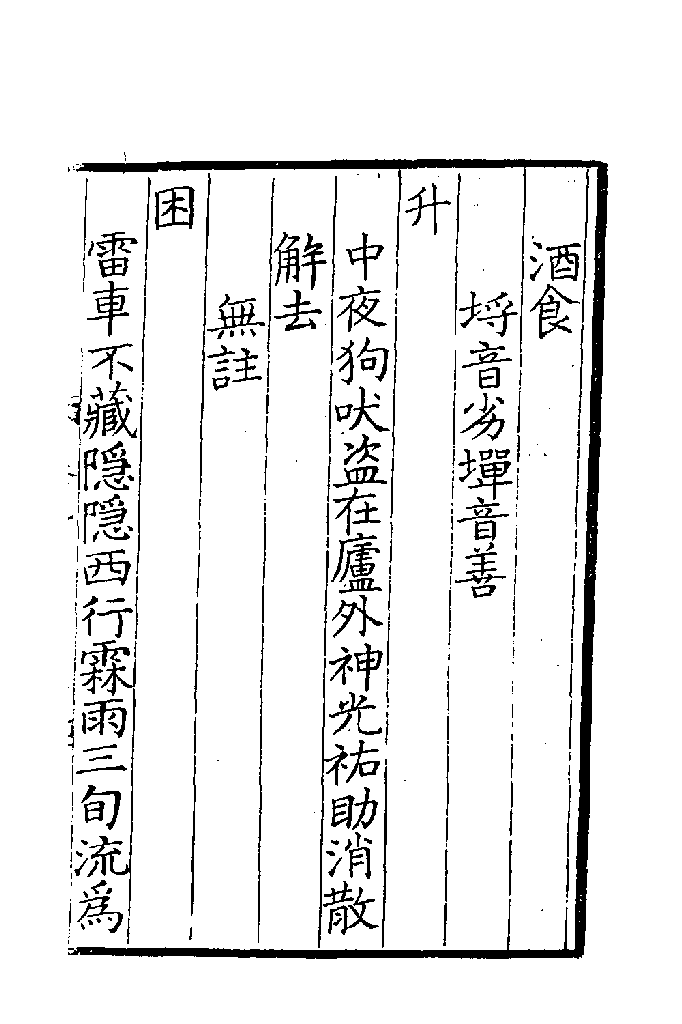 酒食
埒音劣墠音善
升
中夜狗吠盗在廬外神光祐助消散
解去
無註
困
雷車不藏隱隱西行霖雨三旬流為